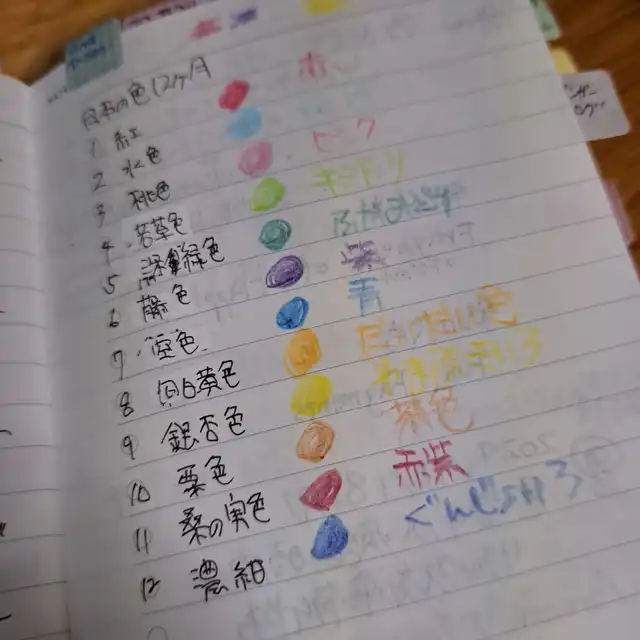 日本の色12ヶ月
1 紅 赤
2 水色
3 桃色 ピンク
4 若葉色 キミドリ
5 深緑色 ふかみどり
6 藤色 紫
7 空色 青
8 向日葵色
9 銀杏色
10 栗色 茶色
11 桑の実色 赤紫
12 濃紺 ぐんじょういろ